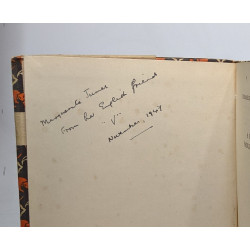 Marguerite
From her English friend
"V"
November, 1947